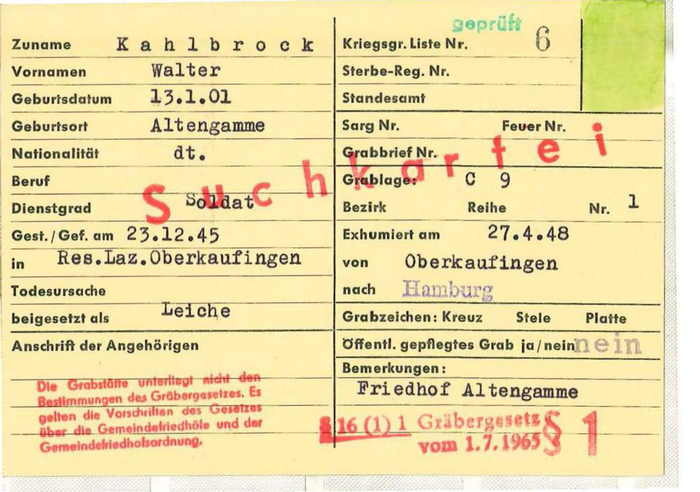 geprüft
Zuname Kahlbrock
Vornamen Walter
Geburtsdatum 13.1.01
Geburtsort Altengamme
Nationalität dt.
Beruf
Dienstgrad Soldat
Gest./Gef. am 23.12.45
in Res.Laz.Oberkaufingen
Todesursache
beigesetzt als Leiche
Anschrift der Angehörigen
Die Grabstätte unterliegt nicht den
Bestimmungen des Gräbergesetzes. Es
gelten die Vorschriften des Gesetzes
über die Gemeindefriedhöfe und der
Gemeindefriedhofsordnung.
Suchkartei
Kriegsgr. Liste Nr. 6
Sterbe-Reg. Nr.
Standesamt
Sarg Nr. Feuer Nr.
Grabbrief Nr.
Grablage: C 9
Bezirk Reihe Nr. 1
Exhumiert am 27.4.48
von Oberkaufingen
nach Hamburg
Grabzeichen: Kreuz Stele Platte
Öffentl. gepflegtes Grab ja/nein nein
Bemerkungen:
Friedhof Altengamme
§ 16 (1) 1 Gräbergesetz
vom 1.7.1965
§ 1